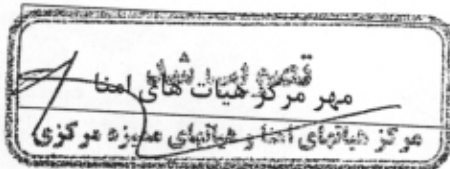 مهر مرکز هیات های امنا
مرکز هیاتهای امنا و هیاتهای ممیزه مرکزی